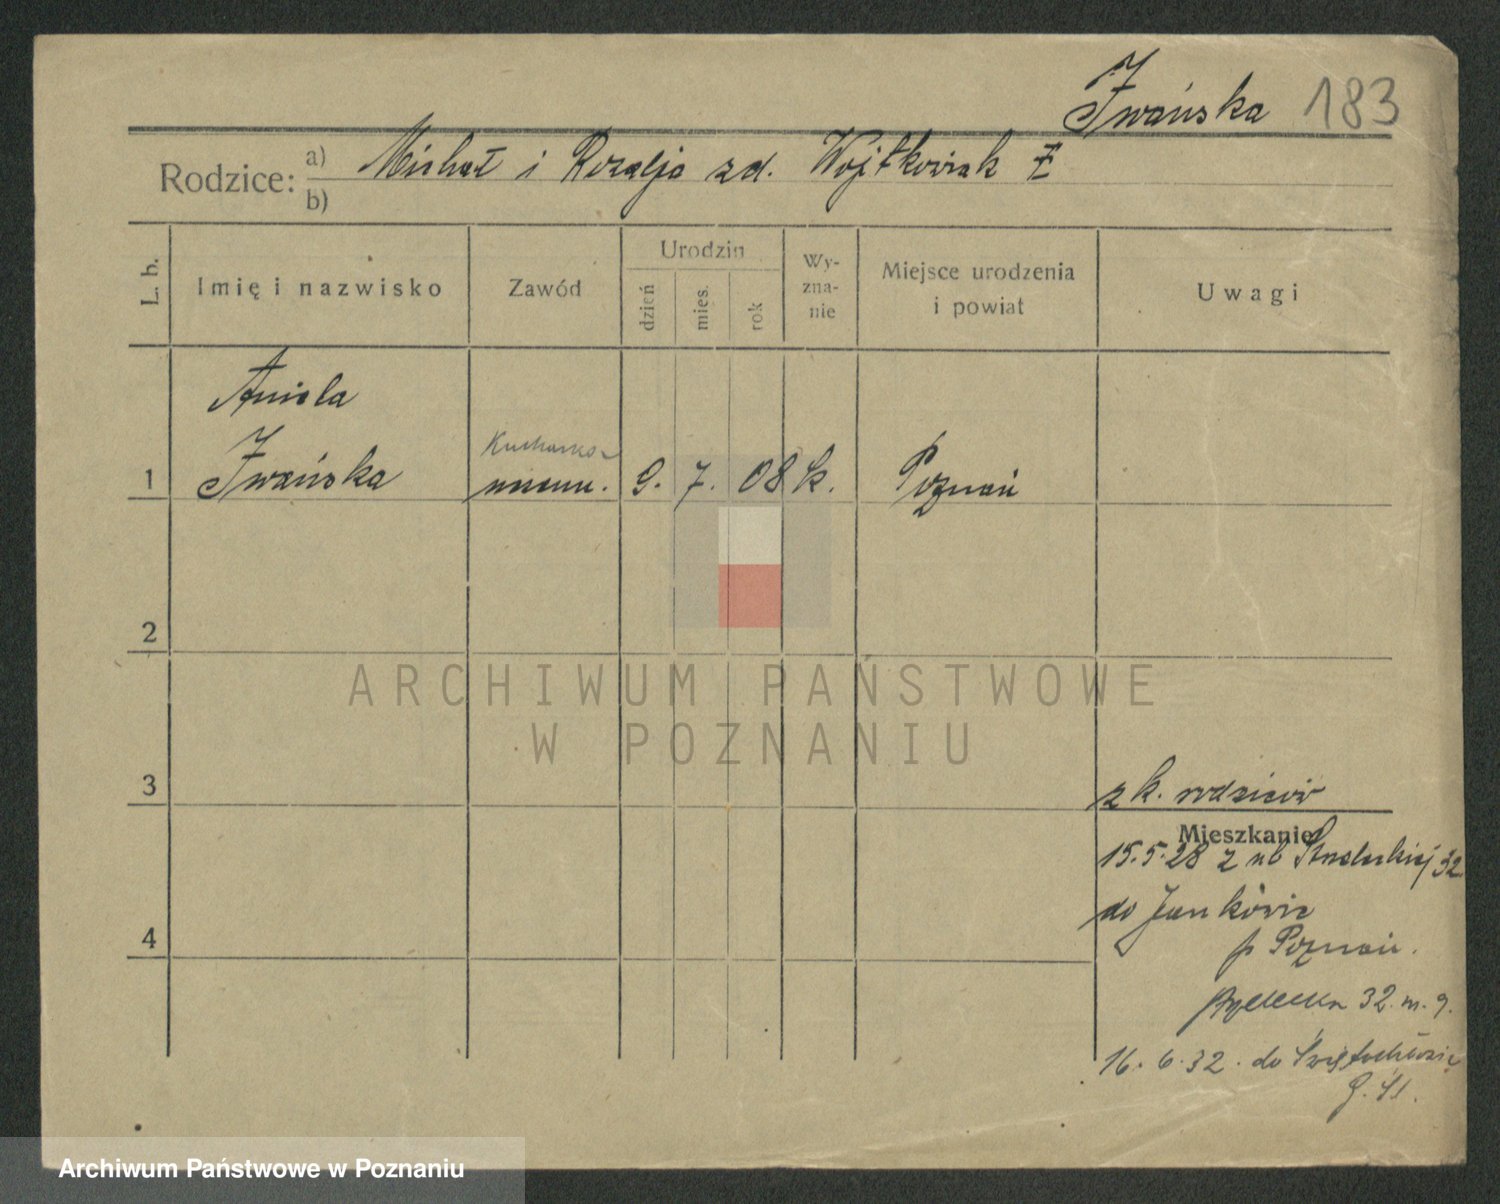 Iwańska 183
Rodzice: a) Michał i Rozalja zd. Wojtkowiak
b)
L. b. Imię i nazwisko Zawód Urodzin dzień mies. rok Wy-zna-nie Miejsce urodzenia i powiat Uwagi
Aniela
Kucharka
1 Iwańska 9. 7. 08 k. Poznań
2
ARCHIWUM PAŃSTWOWE
W POZNANIU
3 z k. rodziców
Mieszkanie
15.5.28 z ul Strzeleckiej 32
do Junikowie
p Poznań.
32. m. 9.
16. 6. 32. do Świętochłowic
G. Śl.
4
Archiwum Państwowe w Poznaniu